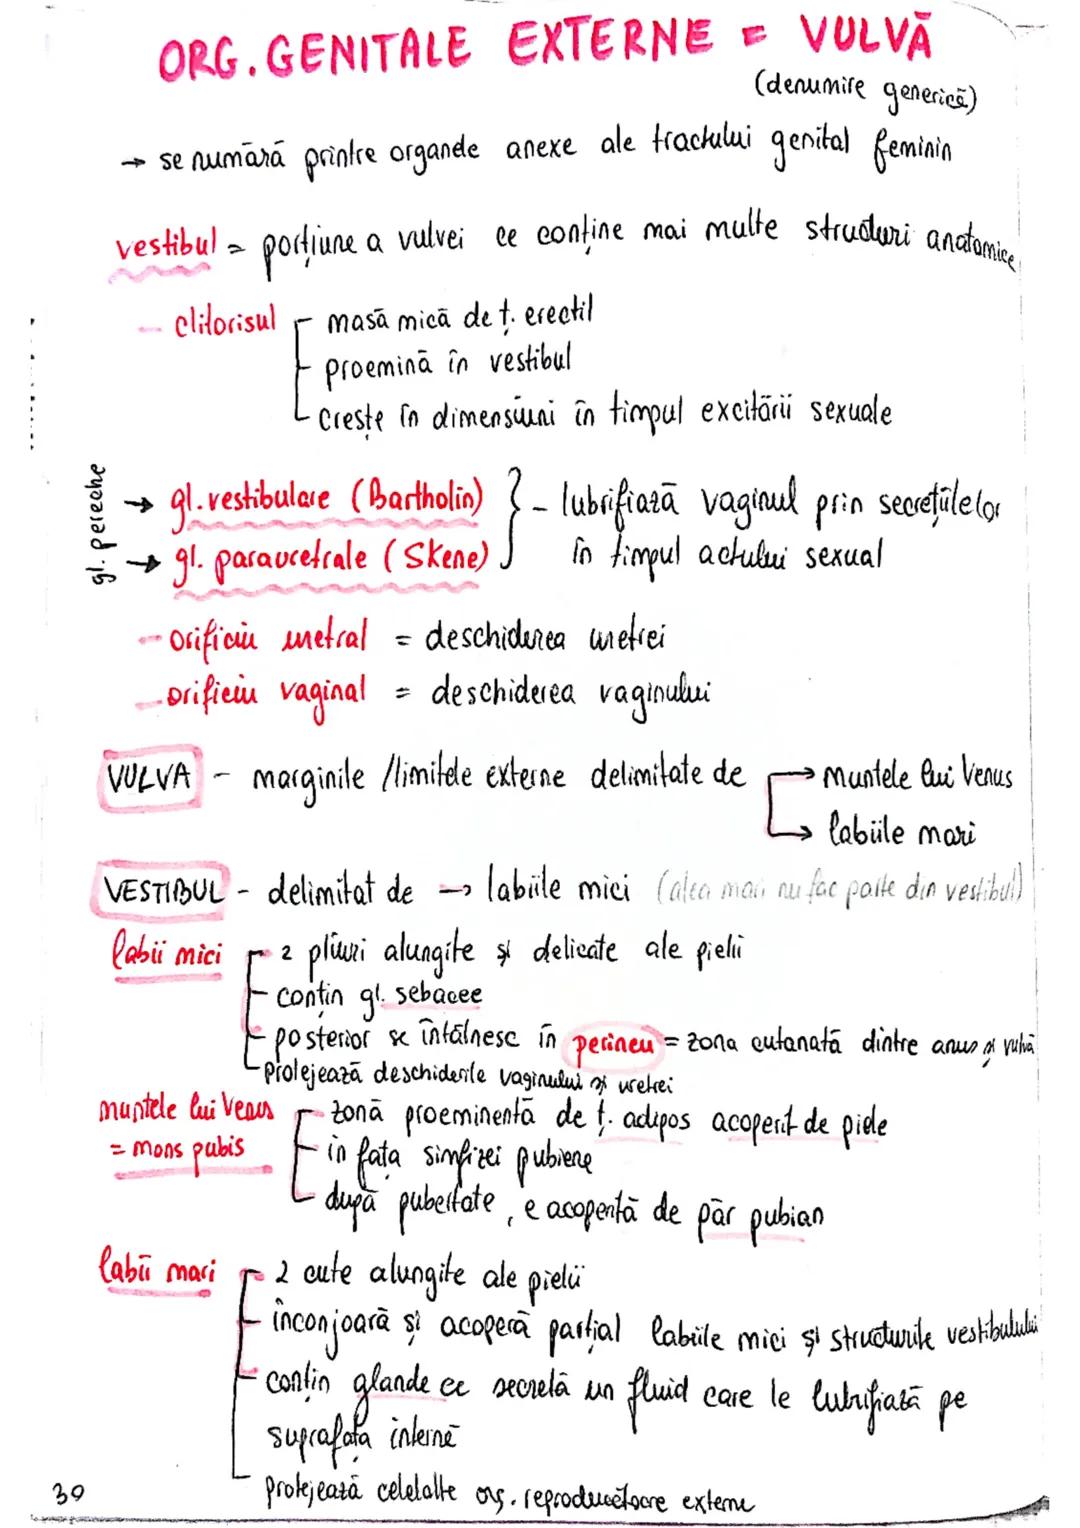 ORG. GENITALE EXTERNE = VULVĂ
(denumire generică)
→ se numără printre organele anexe ale tractului genital feminin
vestibul = porțiune a vulvei ce conține mai multe structuri anatomice
- clitorisul - masă mică de ț. erectil
- proemină în vestibul
- crește în dimensiuni în timpul excitării sexuale
gl. pereche
→ gl. vestibulare (Bartholin) } - lubrifiază vaginul prin secrețiile lor
→ gl. parauretrale (Skene) în timpul actului sexual
- orificiu uretral = deschiderea uretrei
- orificiu vaginal = deschiderea vaginului
VULVA - marginile /limitele externe delimitate de → muntele lui Venus
→ labiile mari
VESTIBUL - delimitat de → labiile mici (alea mari nu fac parte din vestibul)
labii mici - 2 pliuri alungite și delicate ale pielii
- conțin gl. sebacee
- posterior se întâlnesc în perineu = zona cutanată dintre anus și vulvă
- protejează deschiderile vaginului și uretrei
muntele lui Venus - zonă proeminentă de ț. adipos acoperit de piele
= mons pubis - în fața simfizei pubiene
- după pubertate, e acoperită de păr pubian
labii mari - 2 cute alungite ale pielii
- înconjoară și acoperă parțial labiile mici și structurile vestibulului
- conțin glande ce secretă un fluid care le lubrifiază pe
suprafața internă
- protejează celelalte org. reproducătoare externe
39